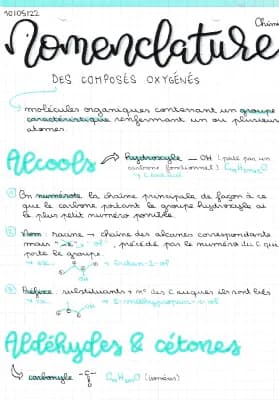 10/05/22
Chimie
Nomenclature
DES COMPOSÉS OXYGÉNÉS
molécules organiques contenant un groupe
caractéristique renfermant un ou plusieurs
atomes.
Alcools → hydroxyle — OH (porté par un
carbone fonctionnel)
① On numérote la chaîne principale de façon à ce
que le carbone portant le groupe hydroxyle ai
le plus petit numéro possible.
② Nom : racine → chaîne des alcanes correspondants
mais "e" → "ol", précédé par le numéro du C qui
porte le groupe.
→ ex. → Butan-2-ol
③ Préfixe : substituants + n° des C auxquels ils sont liés
→ ex.
Aldéhydes & cétones
↳ carbonyle - C -